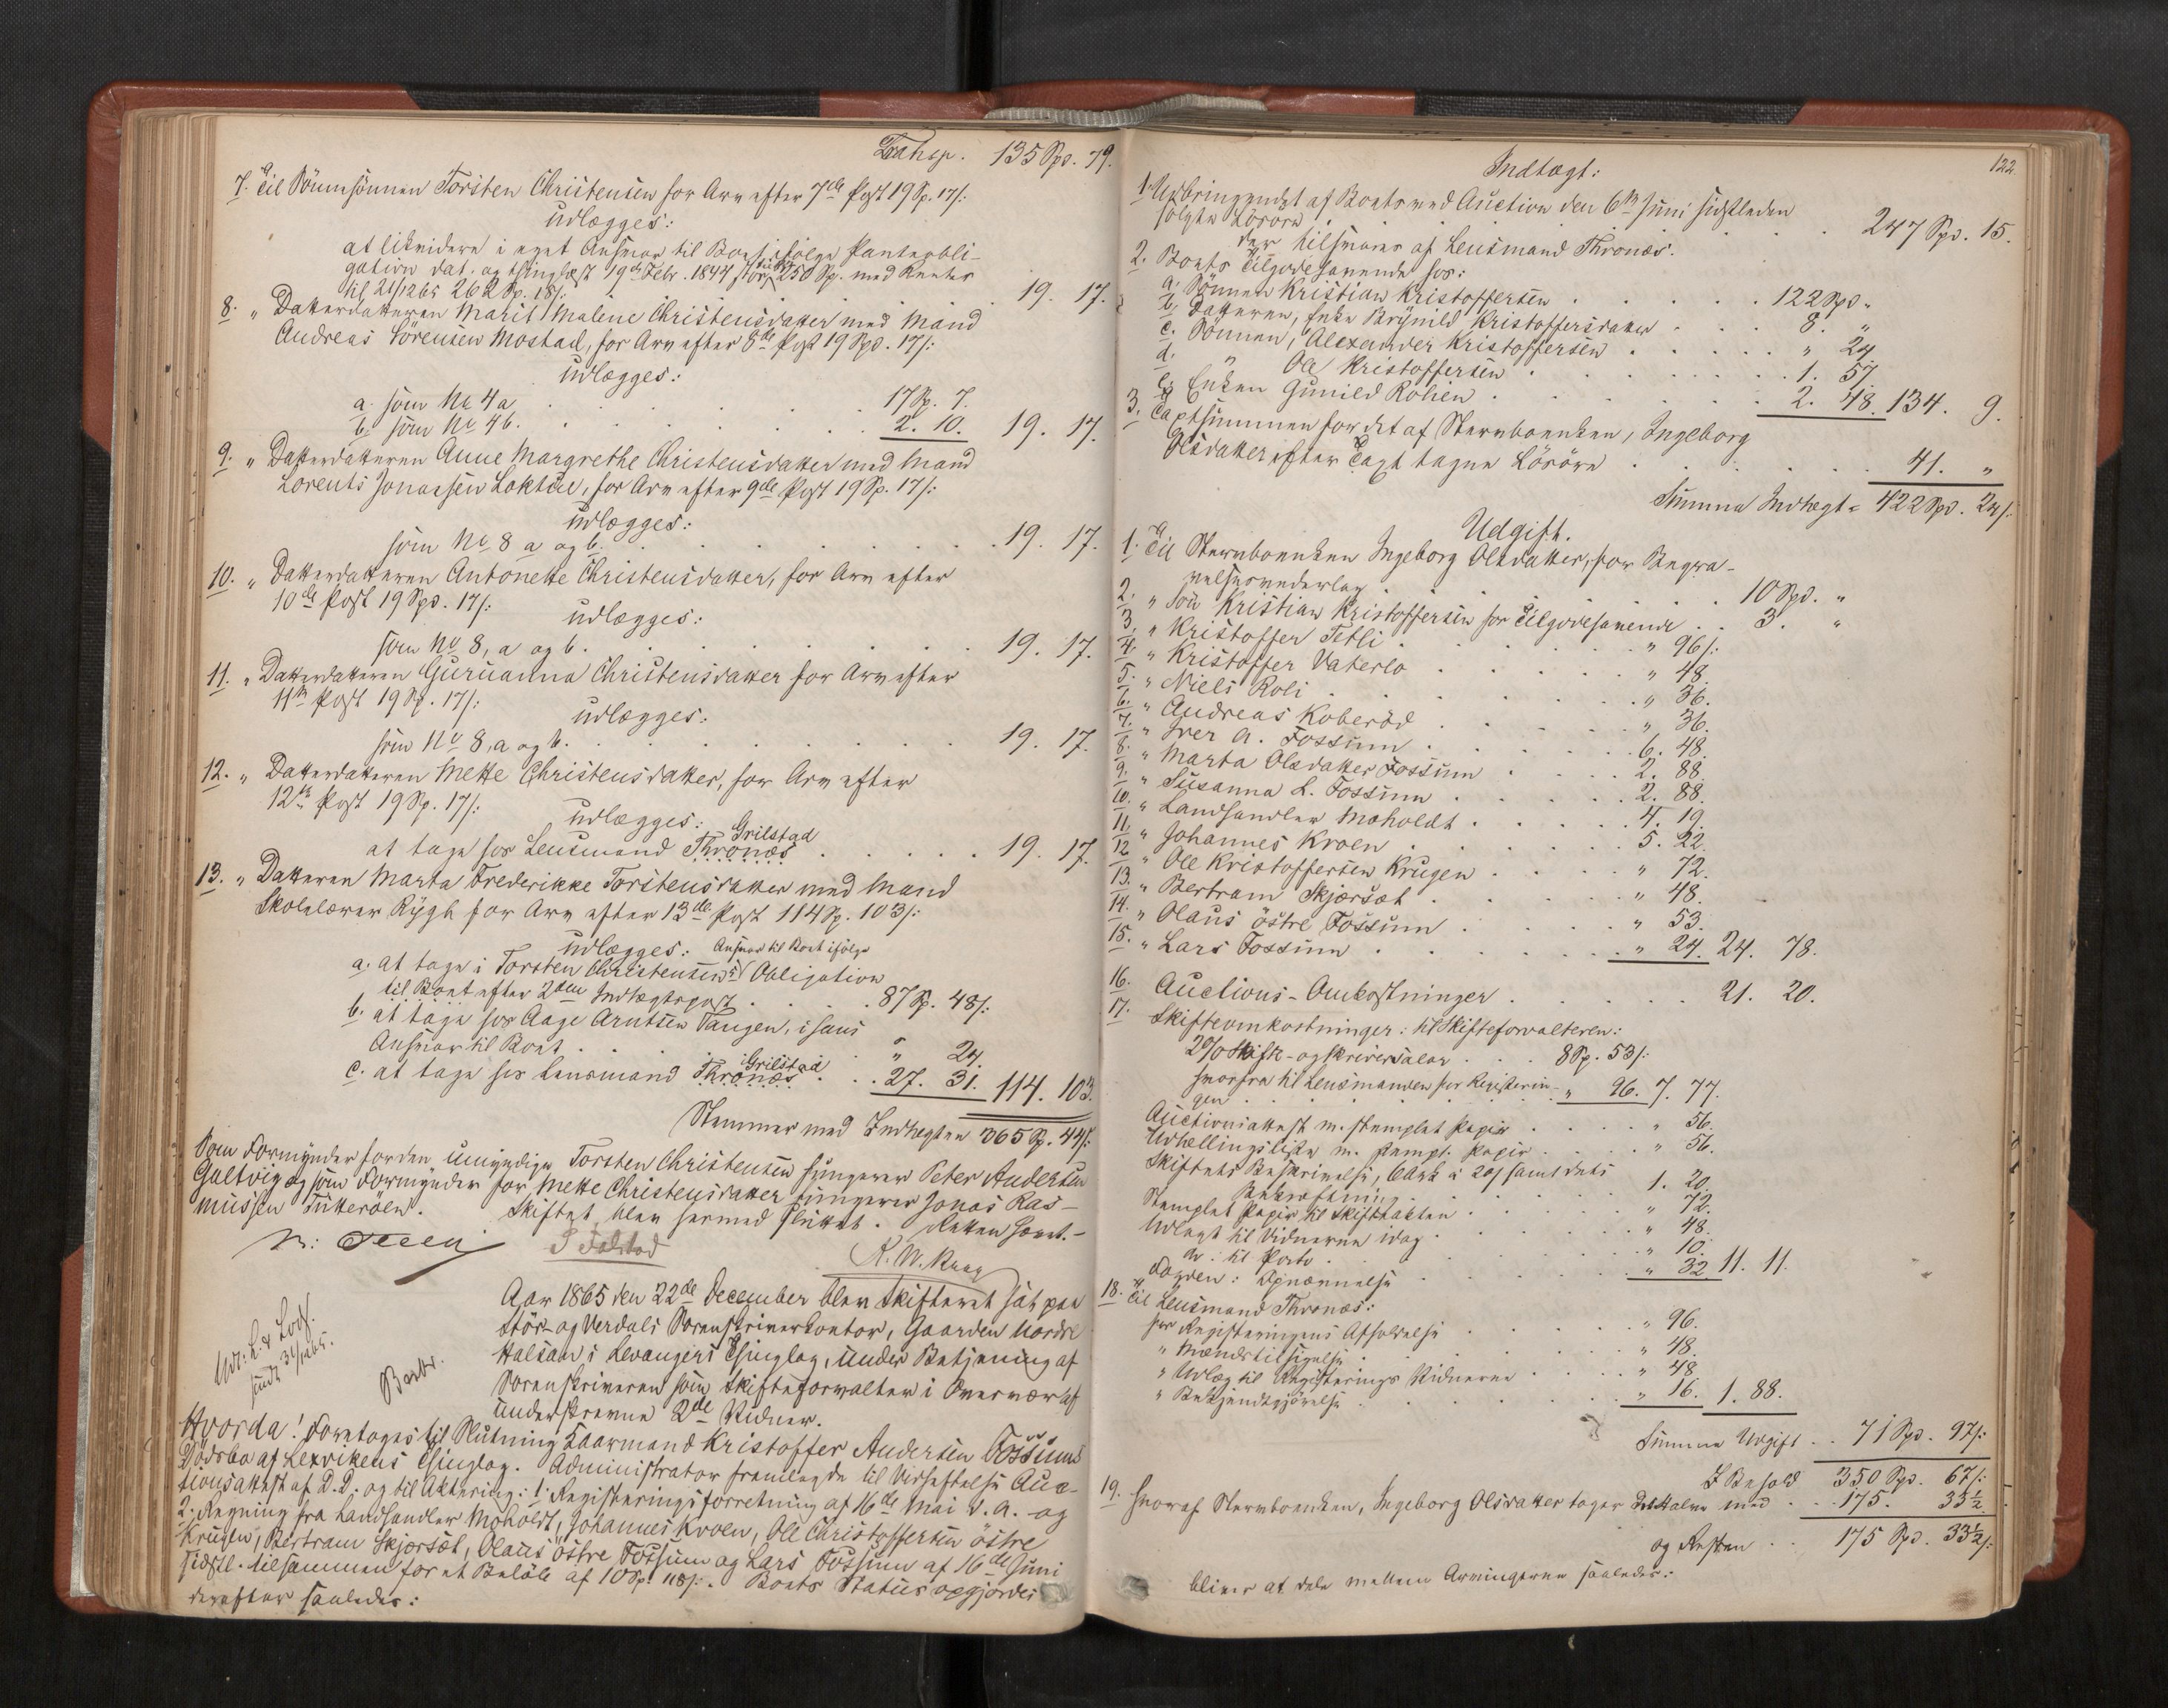 Transp. 135 Spd. 79.
7. Til Sönnesönnen Torsten Christensen for Arv efter 7de Post 19 Sp. 17/:
udlægges:
at likvidere i eget Ansvar til Boet ifölge Panteobli-
gation dat. og thinglæst 19de Febr. 1844, stor 250 Sp. med Renter
til 21/12 65 262 Sp. 18/: 19. 17.
8. " Datterdatteren Marit Malene Christensdatter med Mand
Andreas Sörensen Mostad, for Arv efter 8de Post 19 Spd. 17/:
udlægges:
a. som No 4 a 17 Sp. 7.
b. som No 4 b. 2. 10. 19. 17.
9. " Datterdatteren Anne Margrethe Christensdatter med Mand
Lorents Jonassen Loktu, for Arv efter 9de Post 19 Sp. 17/:
udlægges:
som No 8 a og b. 19. 17.
10. " Datterdatteren Antonette Christensdatter, for Arv efter
10de Post 19 Spd. 17/:
udlægges:
som No 8, a og b. 19. 17.
11. " Datterdatteren Gurianna Christensdatter for Arv efter
11te Post 19 Sp. 17/:
udlægges:
som No 8, a og b. 19. 17.
12. " Datterdatteren Mette Christensdatter, for Arv efter
12te Post 19 Sp. 17/:
udlægges:
Grilstad
at tage hos Lensmand Thronæs 19. 17.
13. " Datteren Marta Frederikke Torstensdatter med Mand
Skolelærer Rygh for Arv efter 13de Post 114 Sp. 103/:
udlægges: Ansvar til Boet ifölge
a. at tage i Torsten Christensens Obligation
til Boet efter 2den Indtægtspost 87 Sp. 48/:
b. at tage hos Aage Arntsen Tangen, i hans
Ansvar til Boet " 24.
Grilstad
c. at tage hos Lensmand Thronæs 27. 31. 114. 103.
Stemmer med Indtægten 365 Sp. 44/:
Som Formynder for den umyndige Torsten Christensen fungerer Peter Andersen
Galtvig og som Formynder for Mette Christensdatter fungerer Jonas Ras-
mussen Tutteröen. Skiftet blev hermed sluttet. Retten hævet.-
S Folstad
Aar 1865 den 22de December blev Skifteret sat paa
Stör- og Verdals Sorenskriverkontor, Gaarden Nordre
Halsan i Levangers Thinglag, under Betjening af
Sorenskriveren som Skifteforvalter i Overvær af
underskrevne 2de Vidner.
Hvorda! Foretoges til Slutning Kaarmand Kristoffer Andersen Fossums
Dödsbo af Lexvikens Thinglag. Administrator fremlagde til Vedheftelse Auc-
tionsattest af D. D. og til Aktering: 1. Registreringsforretning af 16de Mai d. A. og
2. Regning fra Landhandler Moholdt, Johannes Kroen, Ole Christoffersen östre
Krugen, Bertram Skjærsæt, Olaus östre Fossum og Lars Fossum af 16de Juni
sidstl. tilsammen for et Belöb af 10 Sp. 118/:. Boets Status opgjordes
derefter saaledes:
122.
Indtægt:
1. Udbringendet af Boets ved Auction den 6te Juni sidstleden
solgte Lösöre 247 Spd. 15.
der tilsvares af Lensmand Thronæs.
2. Boets Tilgodehavende hos:
a. Sönnen Kristian Kristoffersen 122 Spd. "
b. Datteren, Enke Brynild Kristoffersdatter 8. "
c. Sönnen, Alexander Kristoffersen " 24
d. " Ole Kristoffersen 1. 57.
e. Enken Gunild Rolien 2. 48. 134. 9.
3. Taxtsummen for det af Stervboenken, Ingeborg
Olsdatter efter Taxt tagne Lösöre 41. "
Summa Indtægt = 422 Spd. 24/:
Udgift.
1. Til Stervboenken Ingeborg Olsdatter, for Begra-
velsesvederlag 10 Spd. "
2. " Sön Kristian Kristoffersen for Tilgodehavende 3. "
3. " Kristoffer Tetli " 96/:
4. " Kristoffer Vaterlo " 48.
5. " Niels Roli " 36.
6. " Andreas Koberöd " 36.
7. " Iver A. Fossum 6. 48.
8. " Marta Olsdatter Fossum 2. 88.
9. " Susanna L. Fossum 2. 88.
10. " Landhandler Moholdt 4. 19.
11. " Johannes Kroen 5. 22.
12. " Ole Kristoffersen Krugen " 72.
13. " Bertram Skjærsæt " 48.
14. " Olaus östre Fossum " 53.
15. " Lars Fossum " 24. 24. 78.
16. Auctions-Omkostninger 21. 20.
17. Skifteomkostninger: til Skifteforvalteren:
2% Skifte- og Skriversalær 8 Sp. 53/:
hvorfra til Lensmanden for Registerin-
gen " 96. 7. 77.
Auctionsattest m. stemplet Papir " 56.
Udtællingsliste m. stempl. Papir " 56.
Skiftets Beskrivelse, 6 Ark à 20/ samt dets
Bekræftning 1. 20.
Stemplet Papir til Skifteakten " 72.
Udlagt til Vidnerne idag " 48.
do: til Porto " 10.
Fogden: Opnævnelse " 32 11. 11.
18. Til Lensmand Thronæs:
for Registeringens Afholdelse " 96.
" Mændstilsigelse " 48.
" Udlæg til Registerings Vidnerne " 48
" Bekjendtgjörelse " 16. 1. 88.
Summa Udgift 71 Spd. 97/:
I Behold 350 Spd. 67/:
19. Hvoraf Stervboenken, Ingeborg Olsdatter tager det Halve med 175. 33½
og Resten 175 Spd. 33½/:
bliver at dele mellem Arvingerne saaledes: